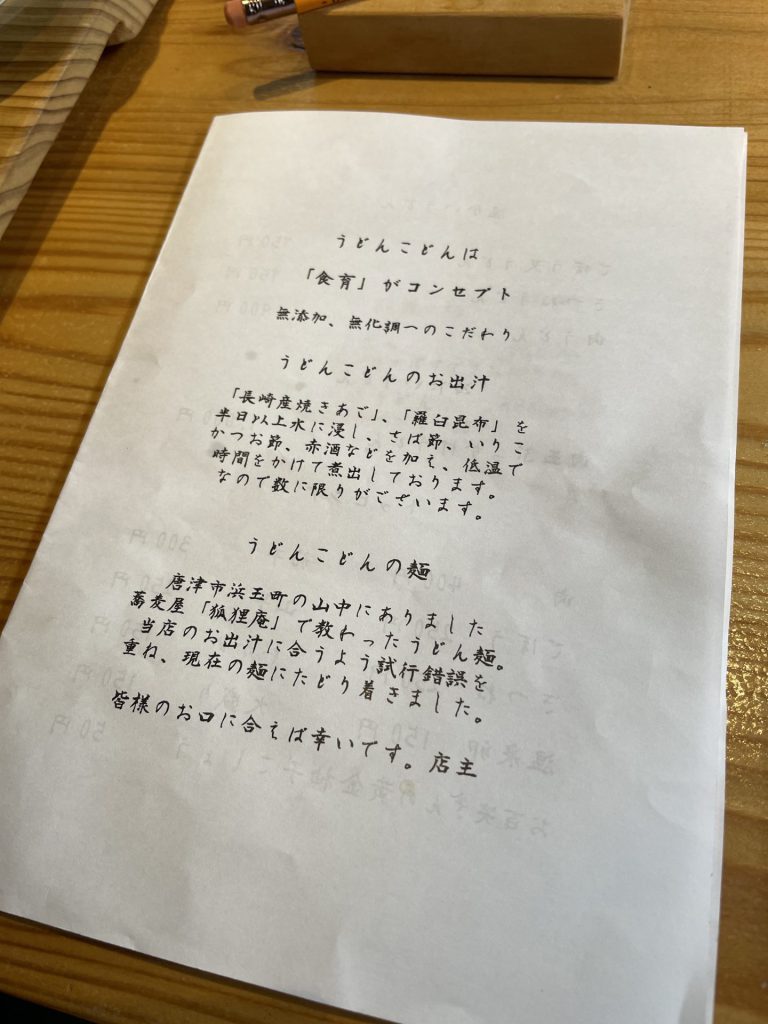 うどんこどんは
「食育」がコンセプト
無添加、無化調へのこだわり
うどんこどんのお出汁
「長崎産焼きあご」、「羅臼昆布」を
半日以上水に浸し、さば節、いりこ
かつお節、赤酒などを加え、低温で
時間をかけて煮出しております。
なので数に限りがございます。
うどんこどんの麺
唐津市浜玉町の山中にありました
蕎麦屋「狐狸庵」で教わったうどん麺。
当店のお出汁に合うよう試行錯誤を
重ね、現在の麺にたどり着きました。
皆様のお口に合えば幸いです。店主